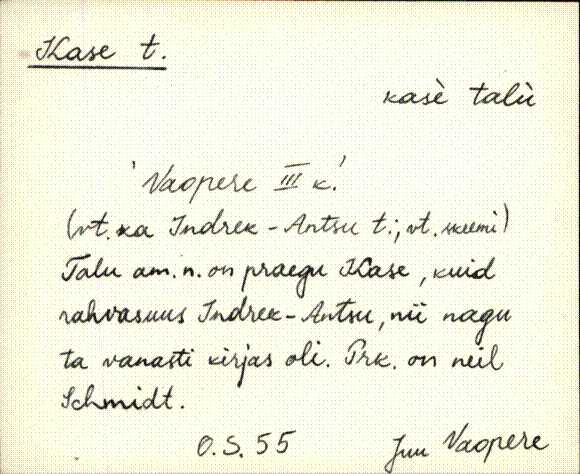 Kase t.
kasè talù
'Vaopere III k.'
(vt. ka Indrek-Antsu t.; vt. skeemi)
Talu am. n. on praegu Kase, kuid
rahvasuus Indrek-Antsu, nii nagu
ta vanasti kirjas oli. Prk. on neil
Schmidt.
O.S. 55 Juu Vaopere